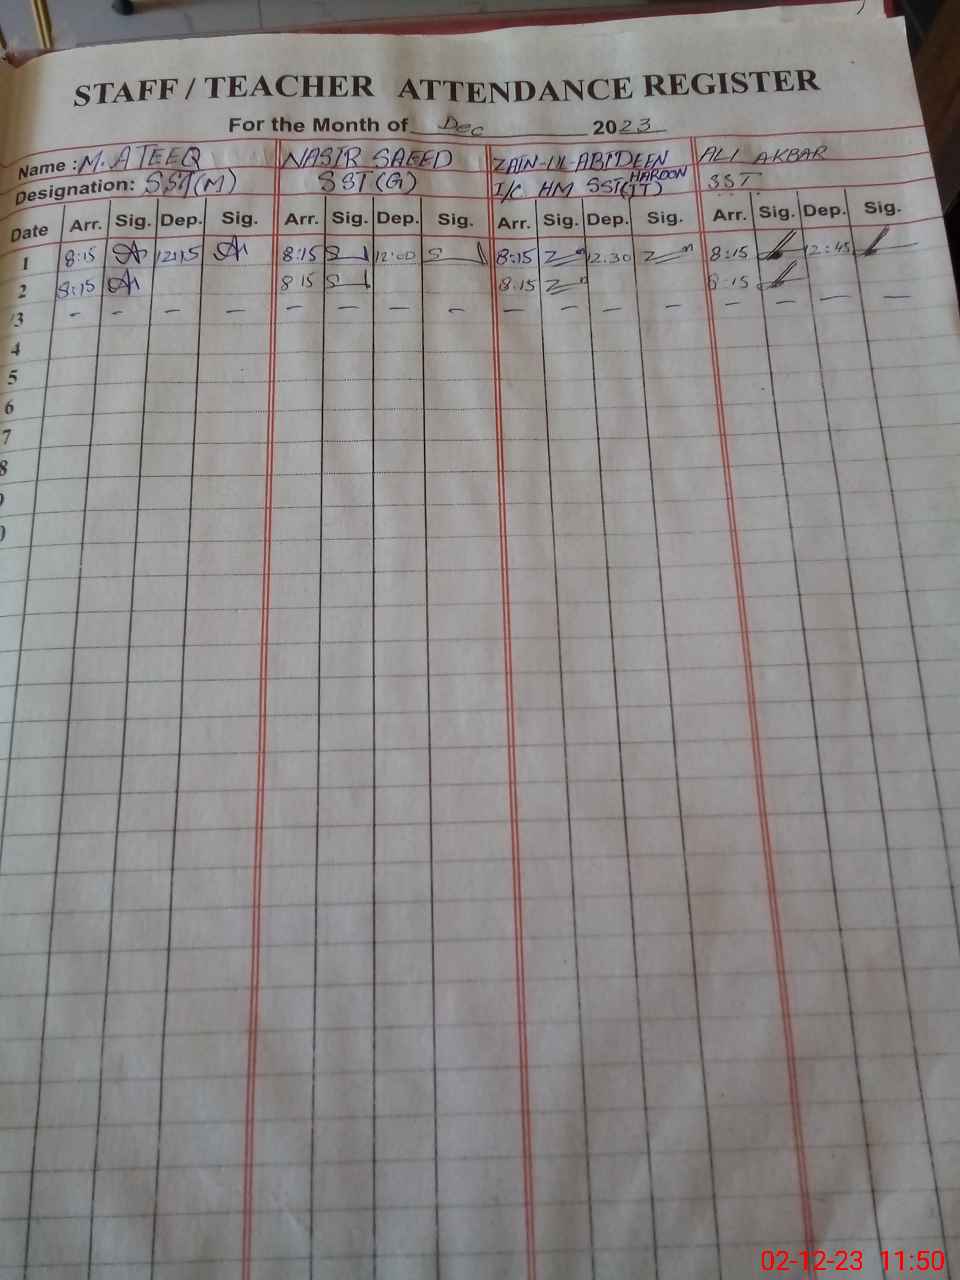 STAFF / TEACHER ATTENDANCE REGISTER
For the Month of Dec 2023
Name : M. ATEEQ NASIR SAEED ZAIN-UL-ABIDEEN HAROON ALI AKBAR
Designation: SST(M) SST(G) I/C HM SST(IT) SST
Date Arr. Sig. Dep. Sig. Arr. Sig. Dep. Sig. Arr. Sig. Dep. Sig. Arr. Sig. Dep. Sig.
1 8:15 12:15 8:15 12:00 8:15 12.30 8:15 12:45
2 8:15 8 15 8:15 8:15
3 - - - - - - - - - - - - - - - -
4
5
6
7
8
02-12-23 11:50